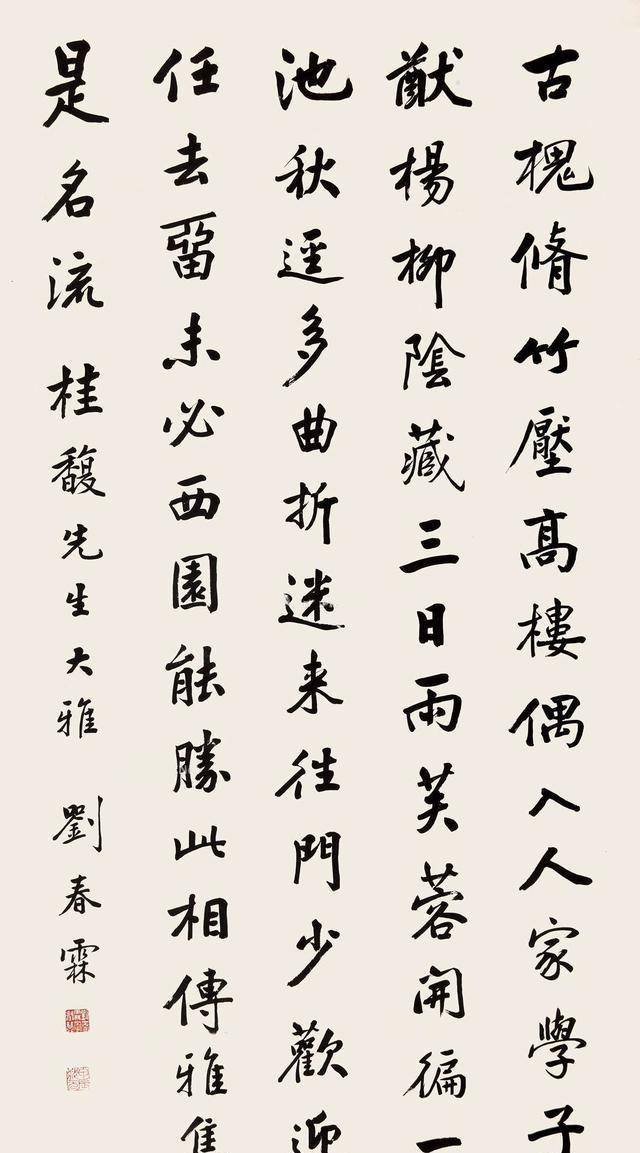 古槐脩竹壓髙樓偶入人家學子
猷楊柳陰藏三日雨芙蓉開徧一
池秋逕多曲折迷来往門少歡迎
任去畱未必西園能勝此相傳雅集
是名流 桂馥先生大雅 劉春霖